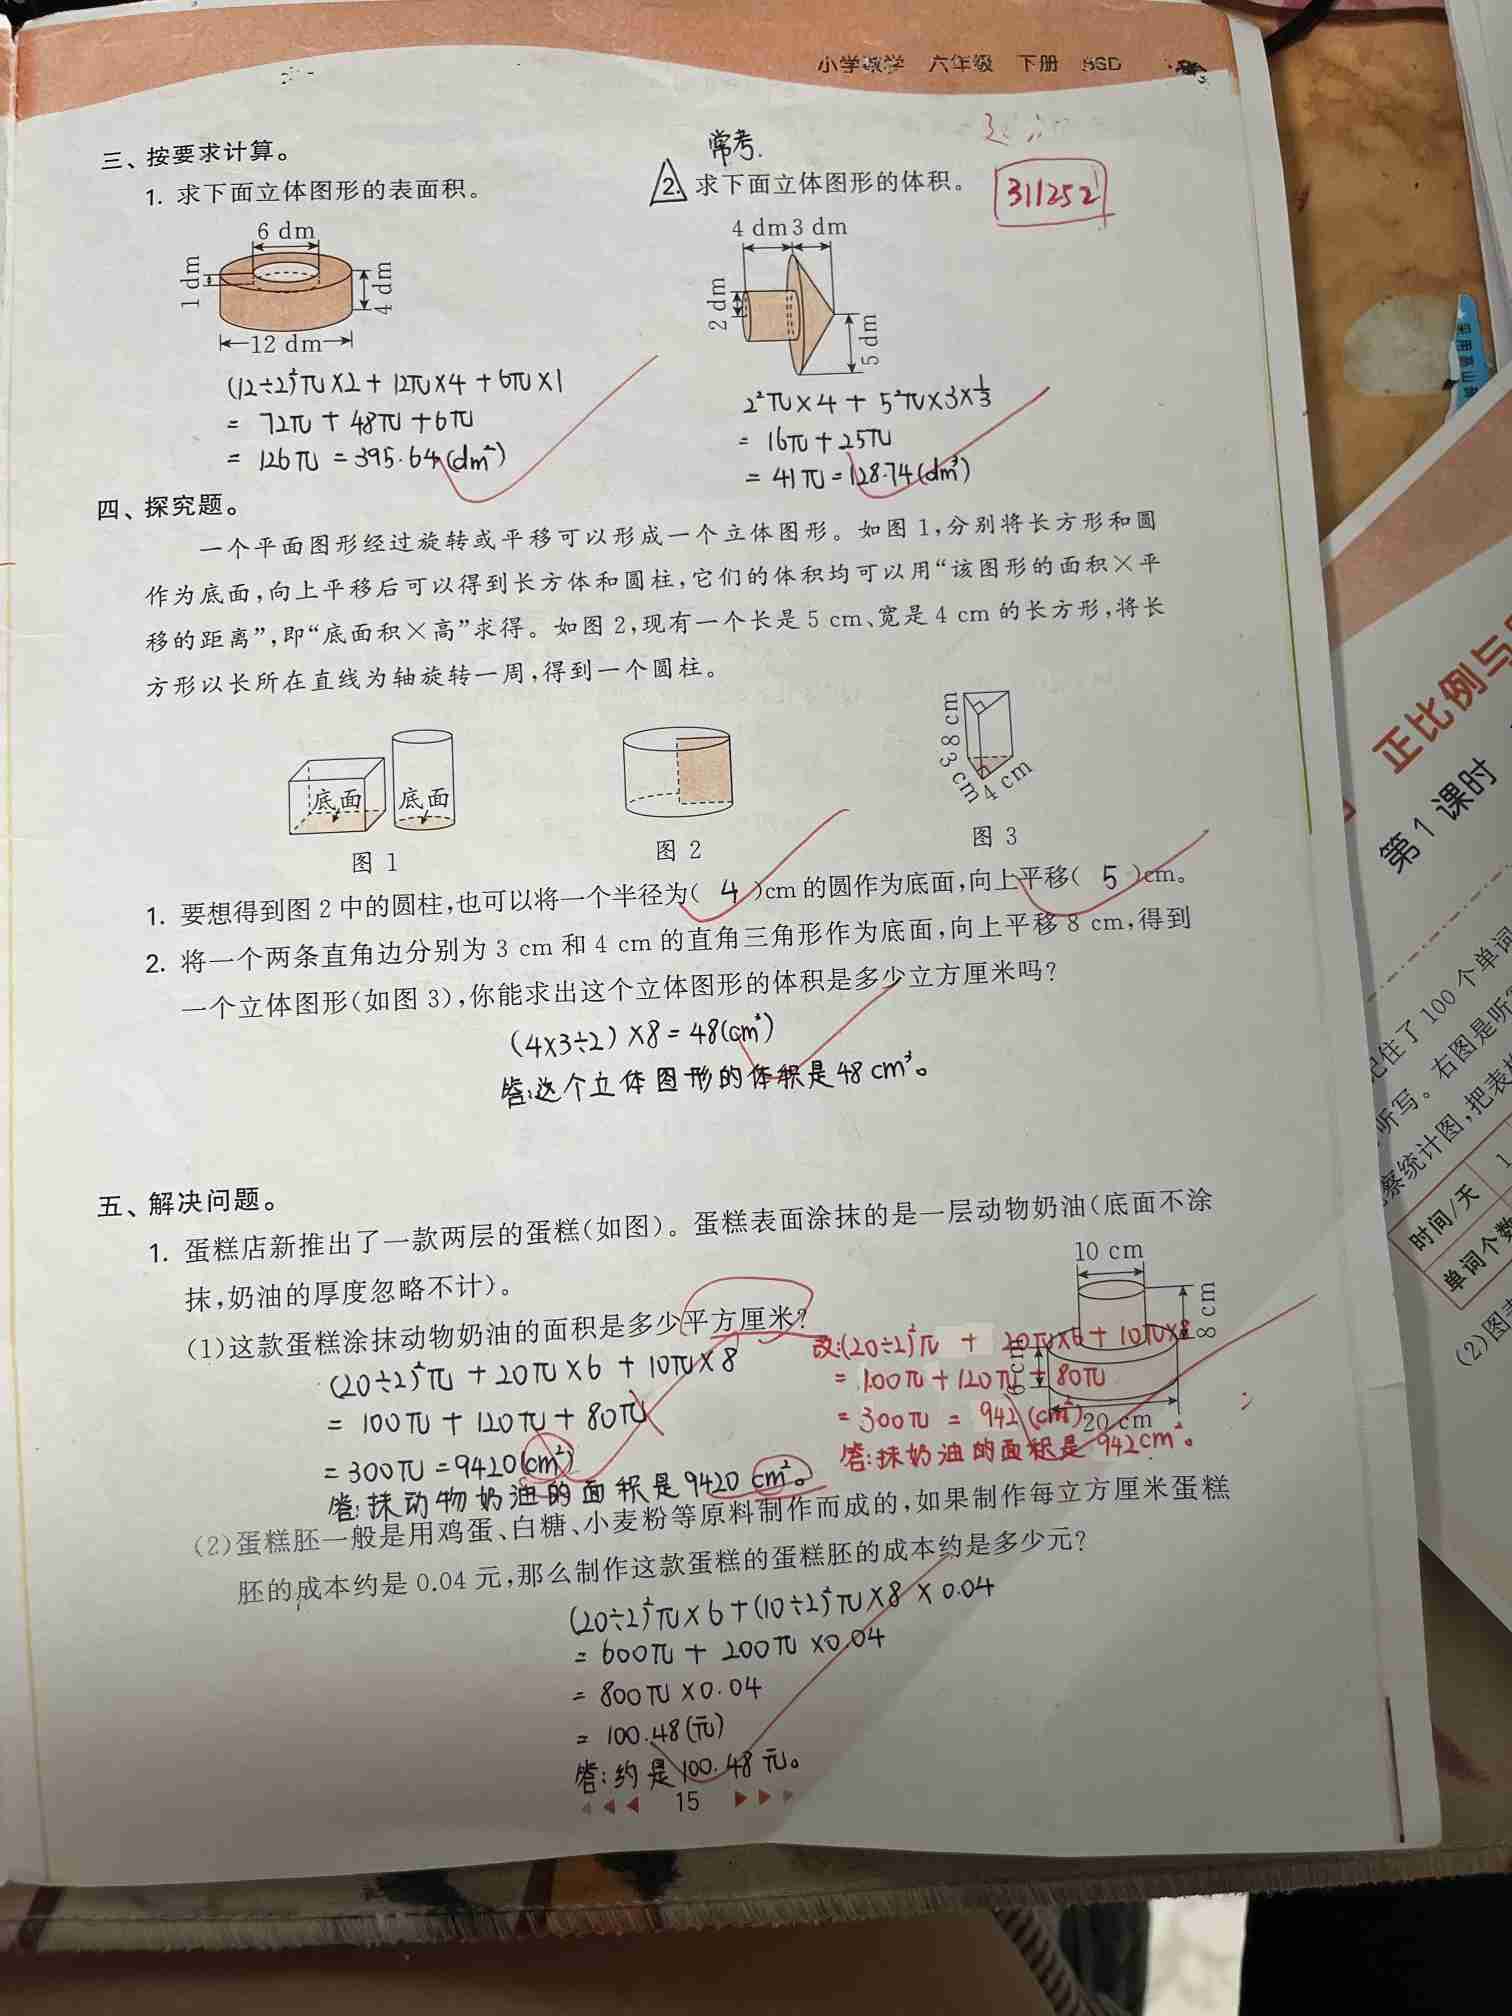 小学数学 六年级 下册 BSD
三、按要求计算。
1. 求下面立体图形的表面积。
6 dm
1 dm
4 dm
12 dm
(12÷2)²π×2+12π×4+6π×1
= 72π+48π+6π
= 126π=395.64(dm²)
常考.
2. 求下面立体图形的体积。
311252
4 dm 3 dm
2 dm
5 dm
2²π×4+5²π×3×1/3
= 16π+25π
= 41π=128.74(dm³)
四、探究题。
一个平面图形经过旋转或平移可以形成一个立体图形。如图 1,分别将长方形和圆
作为底面,向上平移后可以得到长方体和圆柱,它们的体积均可以用“该图形的面积×平
移的距离”,即“底面积×高”求得。如图 2,现有一个长是 5 cm、宽是 4 cm 的长方形,将长
方形以长所在直线为轴旋转一周,得到一个圆柱。
底面
底面
图 1
图 2
8 cm
3 cm
4 cm
图 3
1. 要想得到图 2 中的圆柱,也可以将一个半径为( 4 )cm 的圆作为底面,向上平移( 5 )cm。
2. 将一个两条直角边分别为 3 cm 和 4 cm 的直角三角形作为底面,向上平移 8 cm,得到
一个立体图形(如图 3),你能求出这个立体图形的体积是多少立方厘米吗?
(4×3÷2)×8=48(cm³)
答:这个立体图形的体积是48cm³。
五、解决问题。
1. 蛋糕店新推出了一款两层的蛋糕(如图)。蛋糕表面涂抹的是一层动物奶油(底面不涂
抹,奶油的厚度忽略不计)。
10 cm
8 cm
6 cm
20 cm
(1)这款蛋糕涂抹动物奶油的面积是多少平方厘米?
(20÷2)²π+20π×6+10π×8
= 100π+120π+80π
= 300π=9420(cm²)
答:抹动物奶油的面积是9420cm²。
改:(20÷2)²π + 20π×6+10π×8
= 100π+120π+80π
= 300π = 942(cm²)
答:抹奶油的面积是942cm²。
(2)蛋糕胚一般是用鸡蛋、白糖、小麦粉等原料制作而成的,如果制作每立方厘米蛋糕
胚的成本约是 0.04 元,那么制作这款蛋糕的蛋糕胚的成本约是多少元?
(20÷2)²π×6+(10÷2)²π×8×0.04
= 600π+200π×0.04
= 800π×0.04
= 100.48(元)
答:约是100.48元。
15
正比例与
第 1 课时
记住了 100 个单词
听写。右图是听
察统计图,把表
时间/天
1
单词个数
(2)图